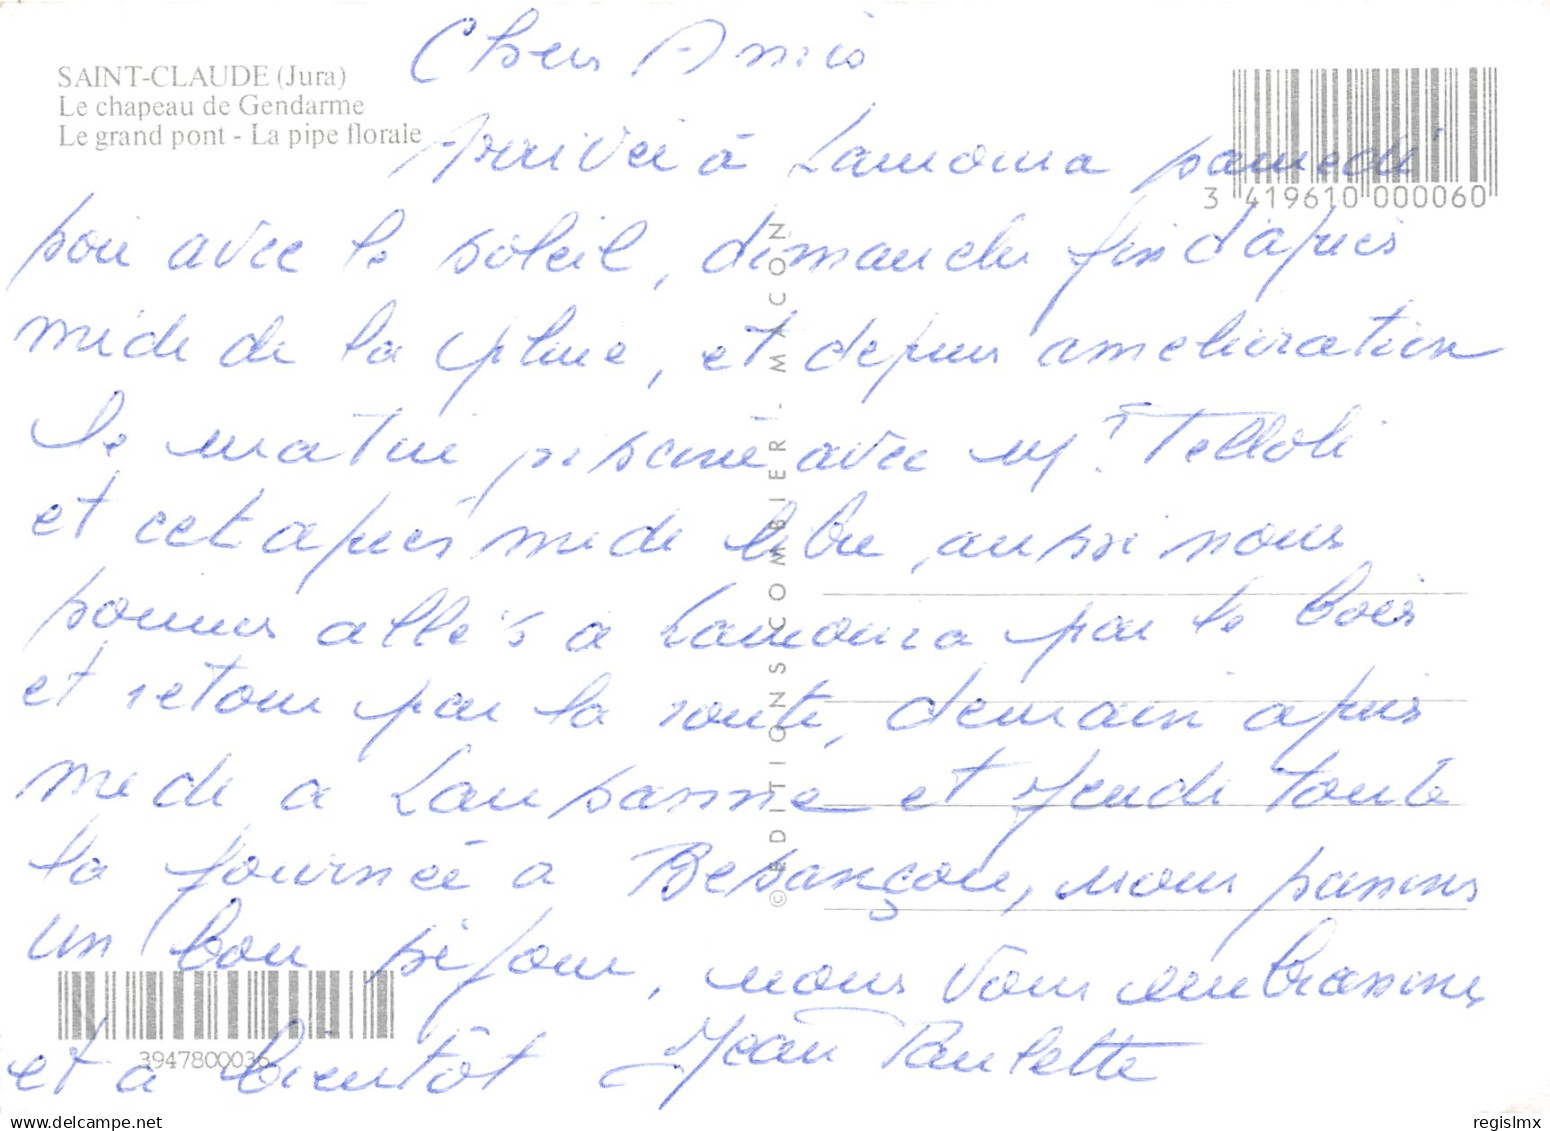 SAINT-CLAUDE (Jura)
Le chapeau de Gendarme
Le grand pont - La pipe florale
Chers Amis
Arrivée à Lamoura samedi
soir avec le soleil, dimanche fin d'après
midi de la pluie, et depuis amélioration
le matin piscine avec Mr Telloli
et cet après midi libre, aussi nous
sommes allés à Lamoura par le bois
et retour par la route, demain après
midi a Lausanne et jeudi toute
la journée a Besançon, nous passons
un bon séjour, nous vous embrassons
et à bientôt Jean Paulette
3 419610 000060
3947800036
© EDITIONS COMBIER - MACON
regislmx